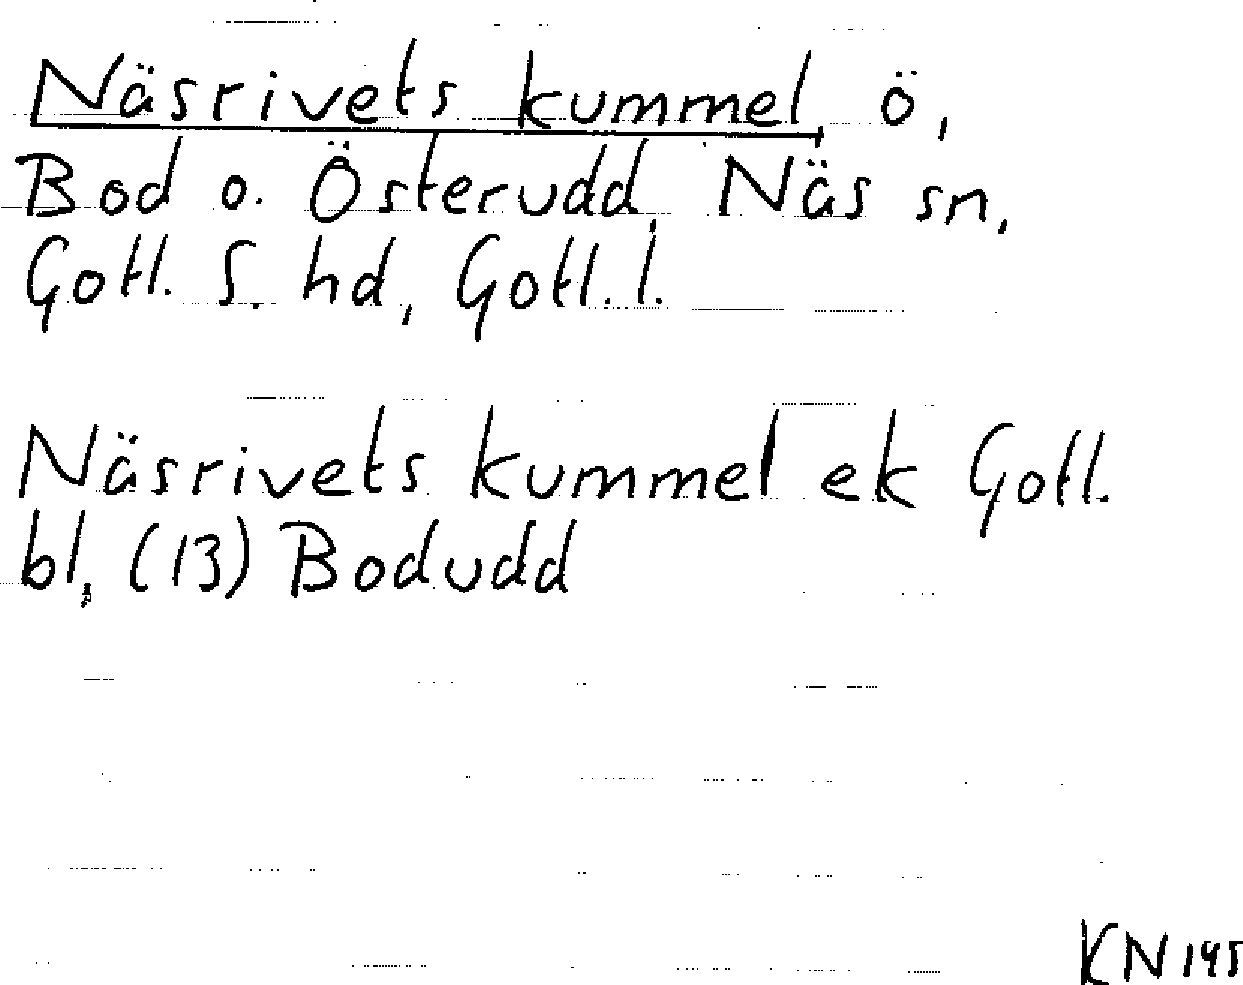 Näsrivets kummel ö,
Bod o. Österudd, Näs sn,
Gotl. S. hd, Gotl. l.
Näsrivets kummel ek Gotl.
bl, (13) Bodudd
KN 145